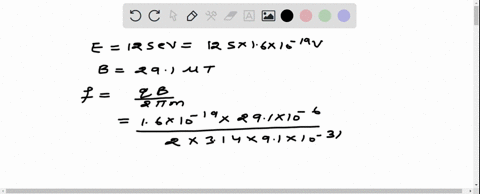 E = 125eV = 125×1.6×10⁻¹⁹V
B = 29.1 μT
f = qB / 2πm
= 1.6×10⁻¹⁹ × 29.1×10⁻⁶ / 2 × 3.14 × 9.1 × 10⁻³¹